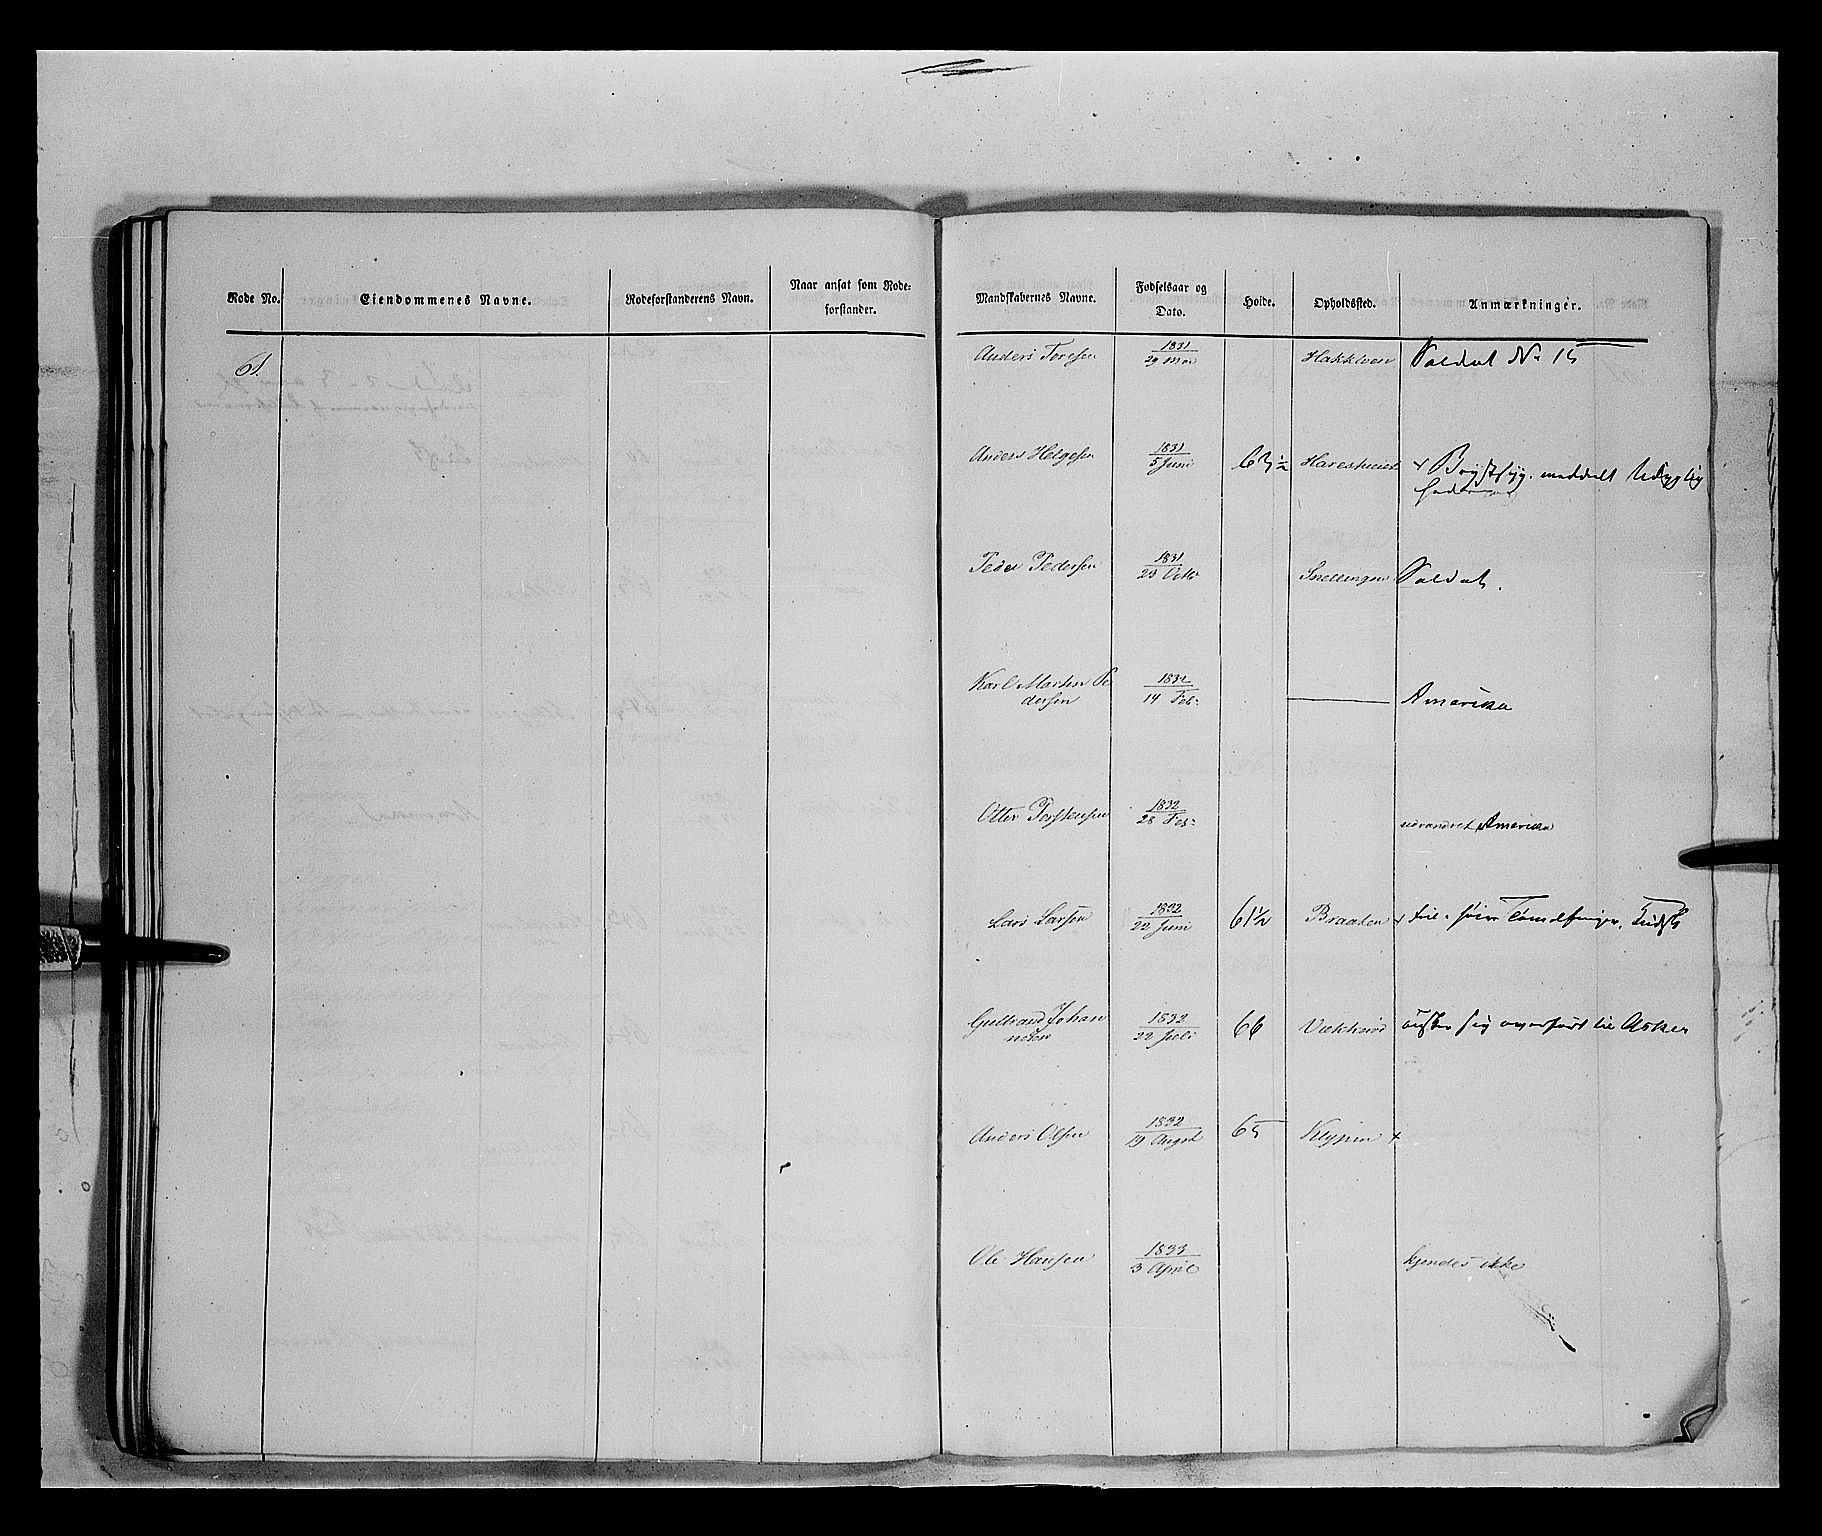 Rode No. Eiendommenes Navne. Rodeforstanderens Navn. Naar ansat som Rode=
forstander.
Mandskabernes Navne. Fødselsaar og
Dato. Høide. Opholdssted. Anmærkninger.
61.
Anders Toresen 1831
29 Mai Hakkloen Soldat No 15
Anders Helgesen 1831
5 Juni 63½ + Brystsyg. meddelt
Peder Pedersen 1831
23 Octb Snellingen Soldat.
Karl Martin Pe
dersen 1832
14 Feb: — Amerika
Otter Torstensen 1832
28 Feb: udvandret Amerika
Lars Larsen 1832
22 Juni 61½ Braaten +
Gulbrand Johan
nesen 1832
22 Juli 66 Vækkerød ønsker sig overført til Asker
Anders Olsen 1832
19 Augst 65 +
Ole Hansen 1833
3 April kjendes ikke